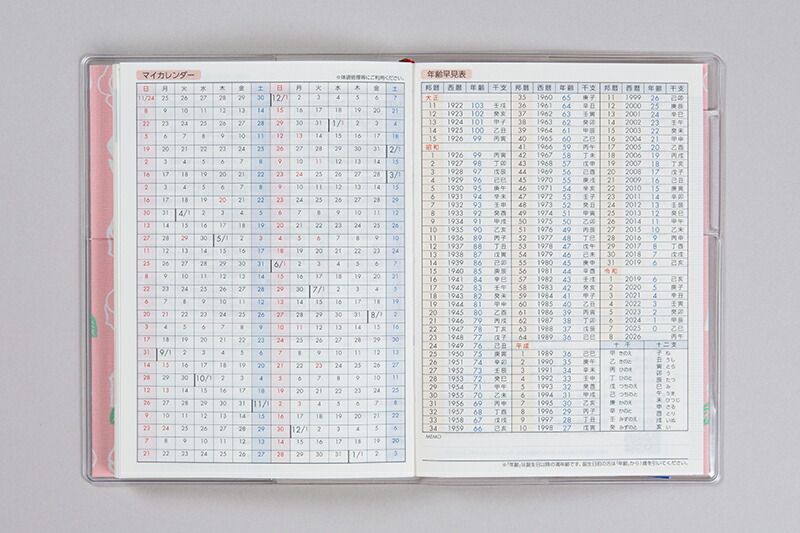 マイカレンダー
※体調処理等にご利用ください。
日 月 火 水 木 金 土 日 月 火 水 木 金 土
11/24 25 26 27 28 29 30 12/1 2 3 4 5 6 7
8 9 10 11 12 13 14 15 16 17 18 19 20 21
22 23 24 25 26 27 28 29 30 31 1/1 2 3 4
5 6 7 8 9 10 11 12 13 14 15 16 17 18
19 20 21 22 23 24 25 26 27 28 29 30 31 2/1
2 3 4 5 6 7 8 9 10 11 12 13 14 15
16 17 18 19 20 21 22 23 24 25 26 27 28 3/1
2 3 4 5 6 7 8 9 10 11 12 13 14 15
16 17 18 19 20 21 22 23 24 25 26 27 28 29
30 31 4/1 2 3 4 5 6 7 8 9 10 11 12
13 14 15 16 17 18 19 20 21 22 23 24 25 26
27 28 29 30 5/1 2 3 4 5 6 7 8 9 10
11 12 13 14 15 16 17 18 19 20 21 22 23 24
25 26 27 28 29 30 31 6/1 2 3 4 5 6 7
8 9 10 11 12 13 14 15 16 17 18 19 20 21
22 23 24 25 26 27 28 29 30 7/1 2 3 4 5
6 7 8 9 10 11 12 13 14 15 16 17 18 19
20 21 22 23 24 25 26 27 28 29 30 31 8/1 2
3 4 5 6 7 8 9 10 11 12 13 14 15 16
17 18 19 20 21 22 23 24 25 26 27 28 29 30
31 9/1 2 3 4 5 6 7 8 9 10 11 12 13
14 15 16 17 18 19 20 21 22 23 24 25 26 27
28 29 30 10/1 2 3 4 5 6 7 8 9 10 11
12 13 14 15 16 17 18 19 20 21 22 23 24 25
26 27 28 29 30 31 11/1 2 3 4 5 6 7 8
9 10 11 12 13 14 15 16 17 18 19 20 21 22
23 24 25 26 27 28 29 30 12/1 2 3 4 5 6
7 8 9 10 11 12 13 14 15 16 17 18 19 20
21 22 23 24 25 26 27 28 29 30 31 1/1 2 3
年齢早見表
邦暦 西暦 年齢 干支 邦暦 西暦 年齢 干支 邦暦 西暦 年齢 干支
大正
11 1922 103 壬戌
12 1923 102 癸亥
13 1924 101 甲子
14 1925 100 乙丑
15 1926 99 丙寅
昭和
1 1926 99 丙寅
2 1927 98 丁卯
3 1928 97 戊辰
4 1929 96 己巳
5 1930 95 庚午
6 1931 94 辛未
7 1932 93 壬申
8 1933 92 癸酉
9 1934 91 甲戌
10 1935 90 乙亥
11 1936 89 丙子
12 1937 88 丁丑
13 1938 87 戊寅
14 1939 86 己卯
15 1940 85 庚辰
16 1941 84 辛巳
17 1942 83 壬午
18 1943 82 癸未
19 1944 81 甲申
20 1945 80 乙酉
21 1946 79 丙戌
22 1947 78 丁亥
23 1948 77 戊子
24 1949 76 己丑
25 1950 75 庚寅
26 1951 74 辛卯
27 1952 73 壬辰
28 1953 72 癸巳
29 1954 71 甲午
30 1955 70 乙未
31 1956 69 丙申
32 1957 68 丁酉
33 1958 67 戊戌
34 1959 66 己亥
35 1960 65 庚子
36 1961 64 辛丑
37 1962 63 壬寅
38 1963 62 癸卯
39 1964 61 甲辰
40 1965 60 乙巳
41 1966 59 丙午
42 1967 58 丁未
43 1968 57 戊申
44 1969 56 己酉
45 1970 55 庚戌
46 1971 54 辛亥
47 1972 53 壬子
48 1973 52 癸丑
49 1974 51 甲寅
50 1975 50 乙卯
51 1976 49 丙辰
52 1977 48 丁巳
53 1978 47 戊午
54 1979 46 己未
55 1980 45 庚申
56 1981 44 辛酉
57 1982 43 壬戌
58 1983 42 癸亥
59 1984 41 甲子
60 1985 40 乙丑
61 1986 39 丙寅
62 1987 38 丁卯
63 1988 37 戊辰
64 1989 36 己巳
平成
1 1989 36 己巳
2 1990 35 庚午
3 1991 34 辛未
4 1992 33 壬申
5 1993 32 癸酉
6 1994 31 甲戌
7 1995 30 乙亥
8 1996 29 丙子
9 1997 28 丁丑
10 1998 27 戊寅
11 1999 26 己卯
12 2000 25 庚辰
13 2001 24 辛巳
14 2002 23 壬午
15 2003 22 癸未
16 2004 21 甲申
17 2005 20 乙酉
18 2006 19 丙戌
19 2007 18 丁亥
20 2008 17 戊子
21 2009 16 己丑
22 2010 15 庚寅
23 2011 14 辛卯
24 2012 13 壬辰
25 2013 12 癸巳
26 2014 11 甲午
27 2015 10 乙未
28 2016 9 丙申
29 2017 8 丁酉
30 2018 7 戊戌
31 2019 6 己亥
令和
1 2019 6 己亥
2 2020 5 庚子
3 2021 4 辛丑
4 2022 3 壬寅
5 2023 2 癸卯
6 2024 1 甲辰
7 2025 0 乙巳
8 2026 丙午
十干 十二支
甲 きのえ 子 ね
乙 きのと 丑 うし
丙 ひのえ 寅 とら
丁 ひのと 卯 う
戊 つちのえ 辰 たつ
己 つちのと 巳 み
庚 かのえ 午 うま
辛 かのと 未 ひつじ
壬 みずのえ 申 さる
癸 みずのと 酉 とり
戌 いぬ
亥 い
MEMO
※「年齢」は誕生日以降の満年齢です。誕生日前の方は「年齢」から1歳を引いてください。